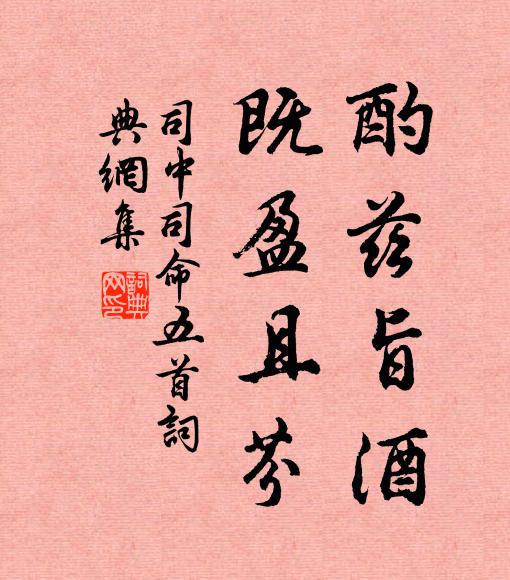 酌兹旨酒
既盈且芬
司中司命五首詞
典網集
詞典
网印